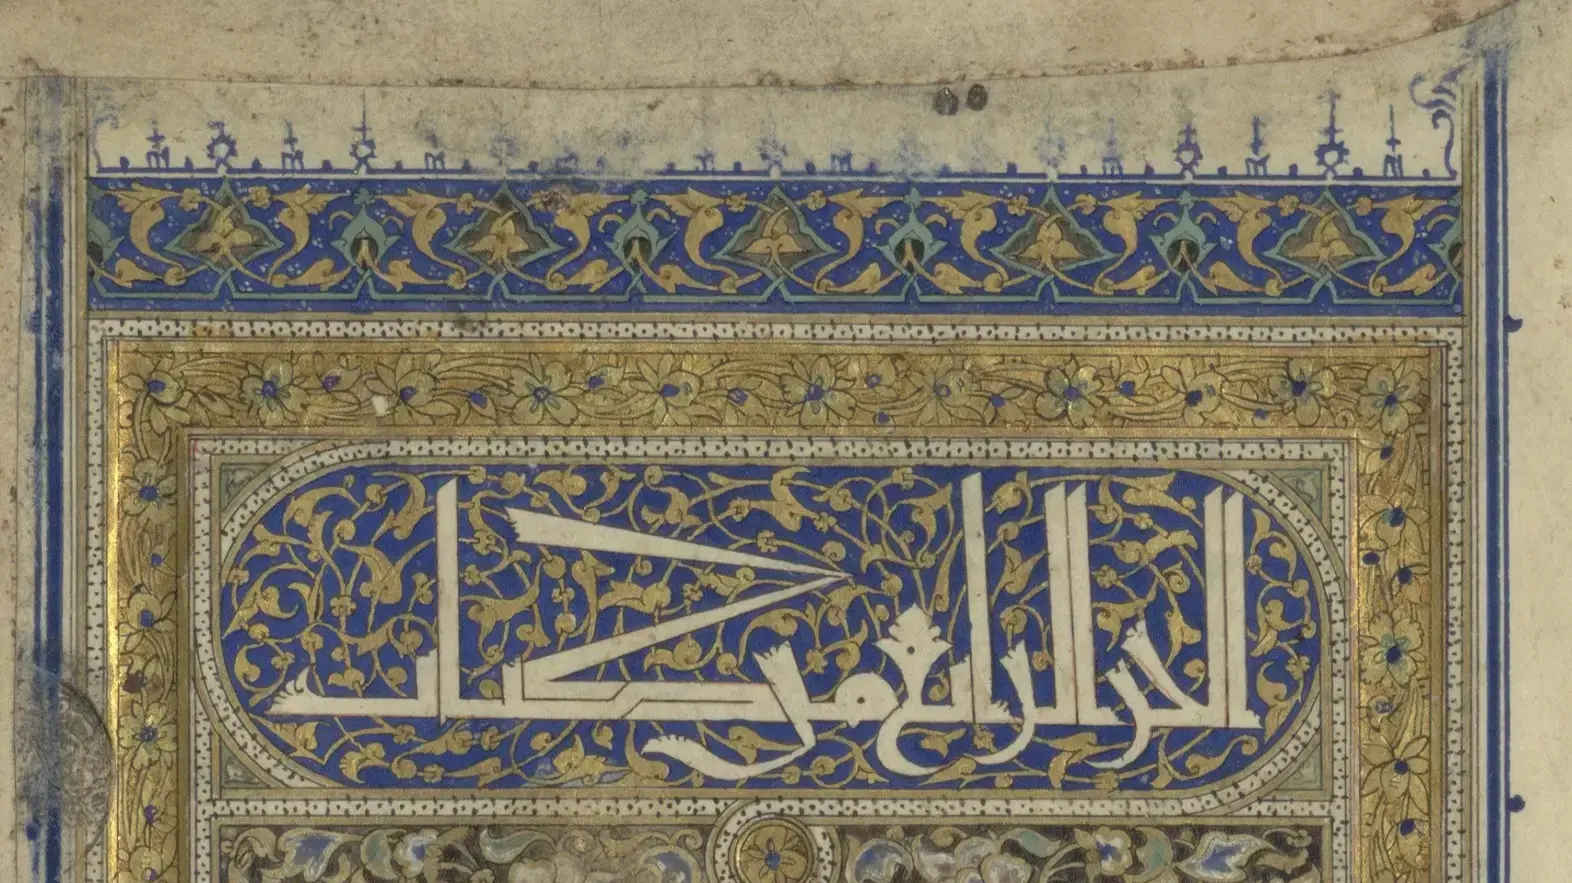 الجز الرابع من كتاب